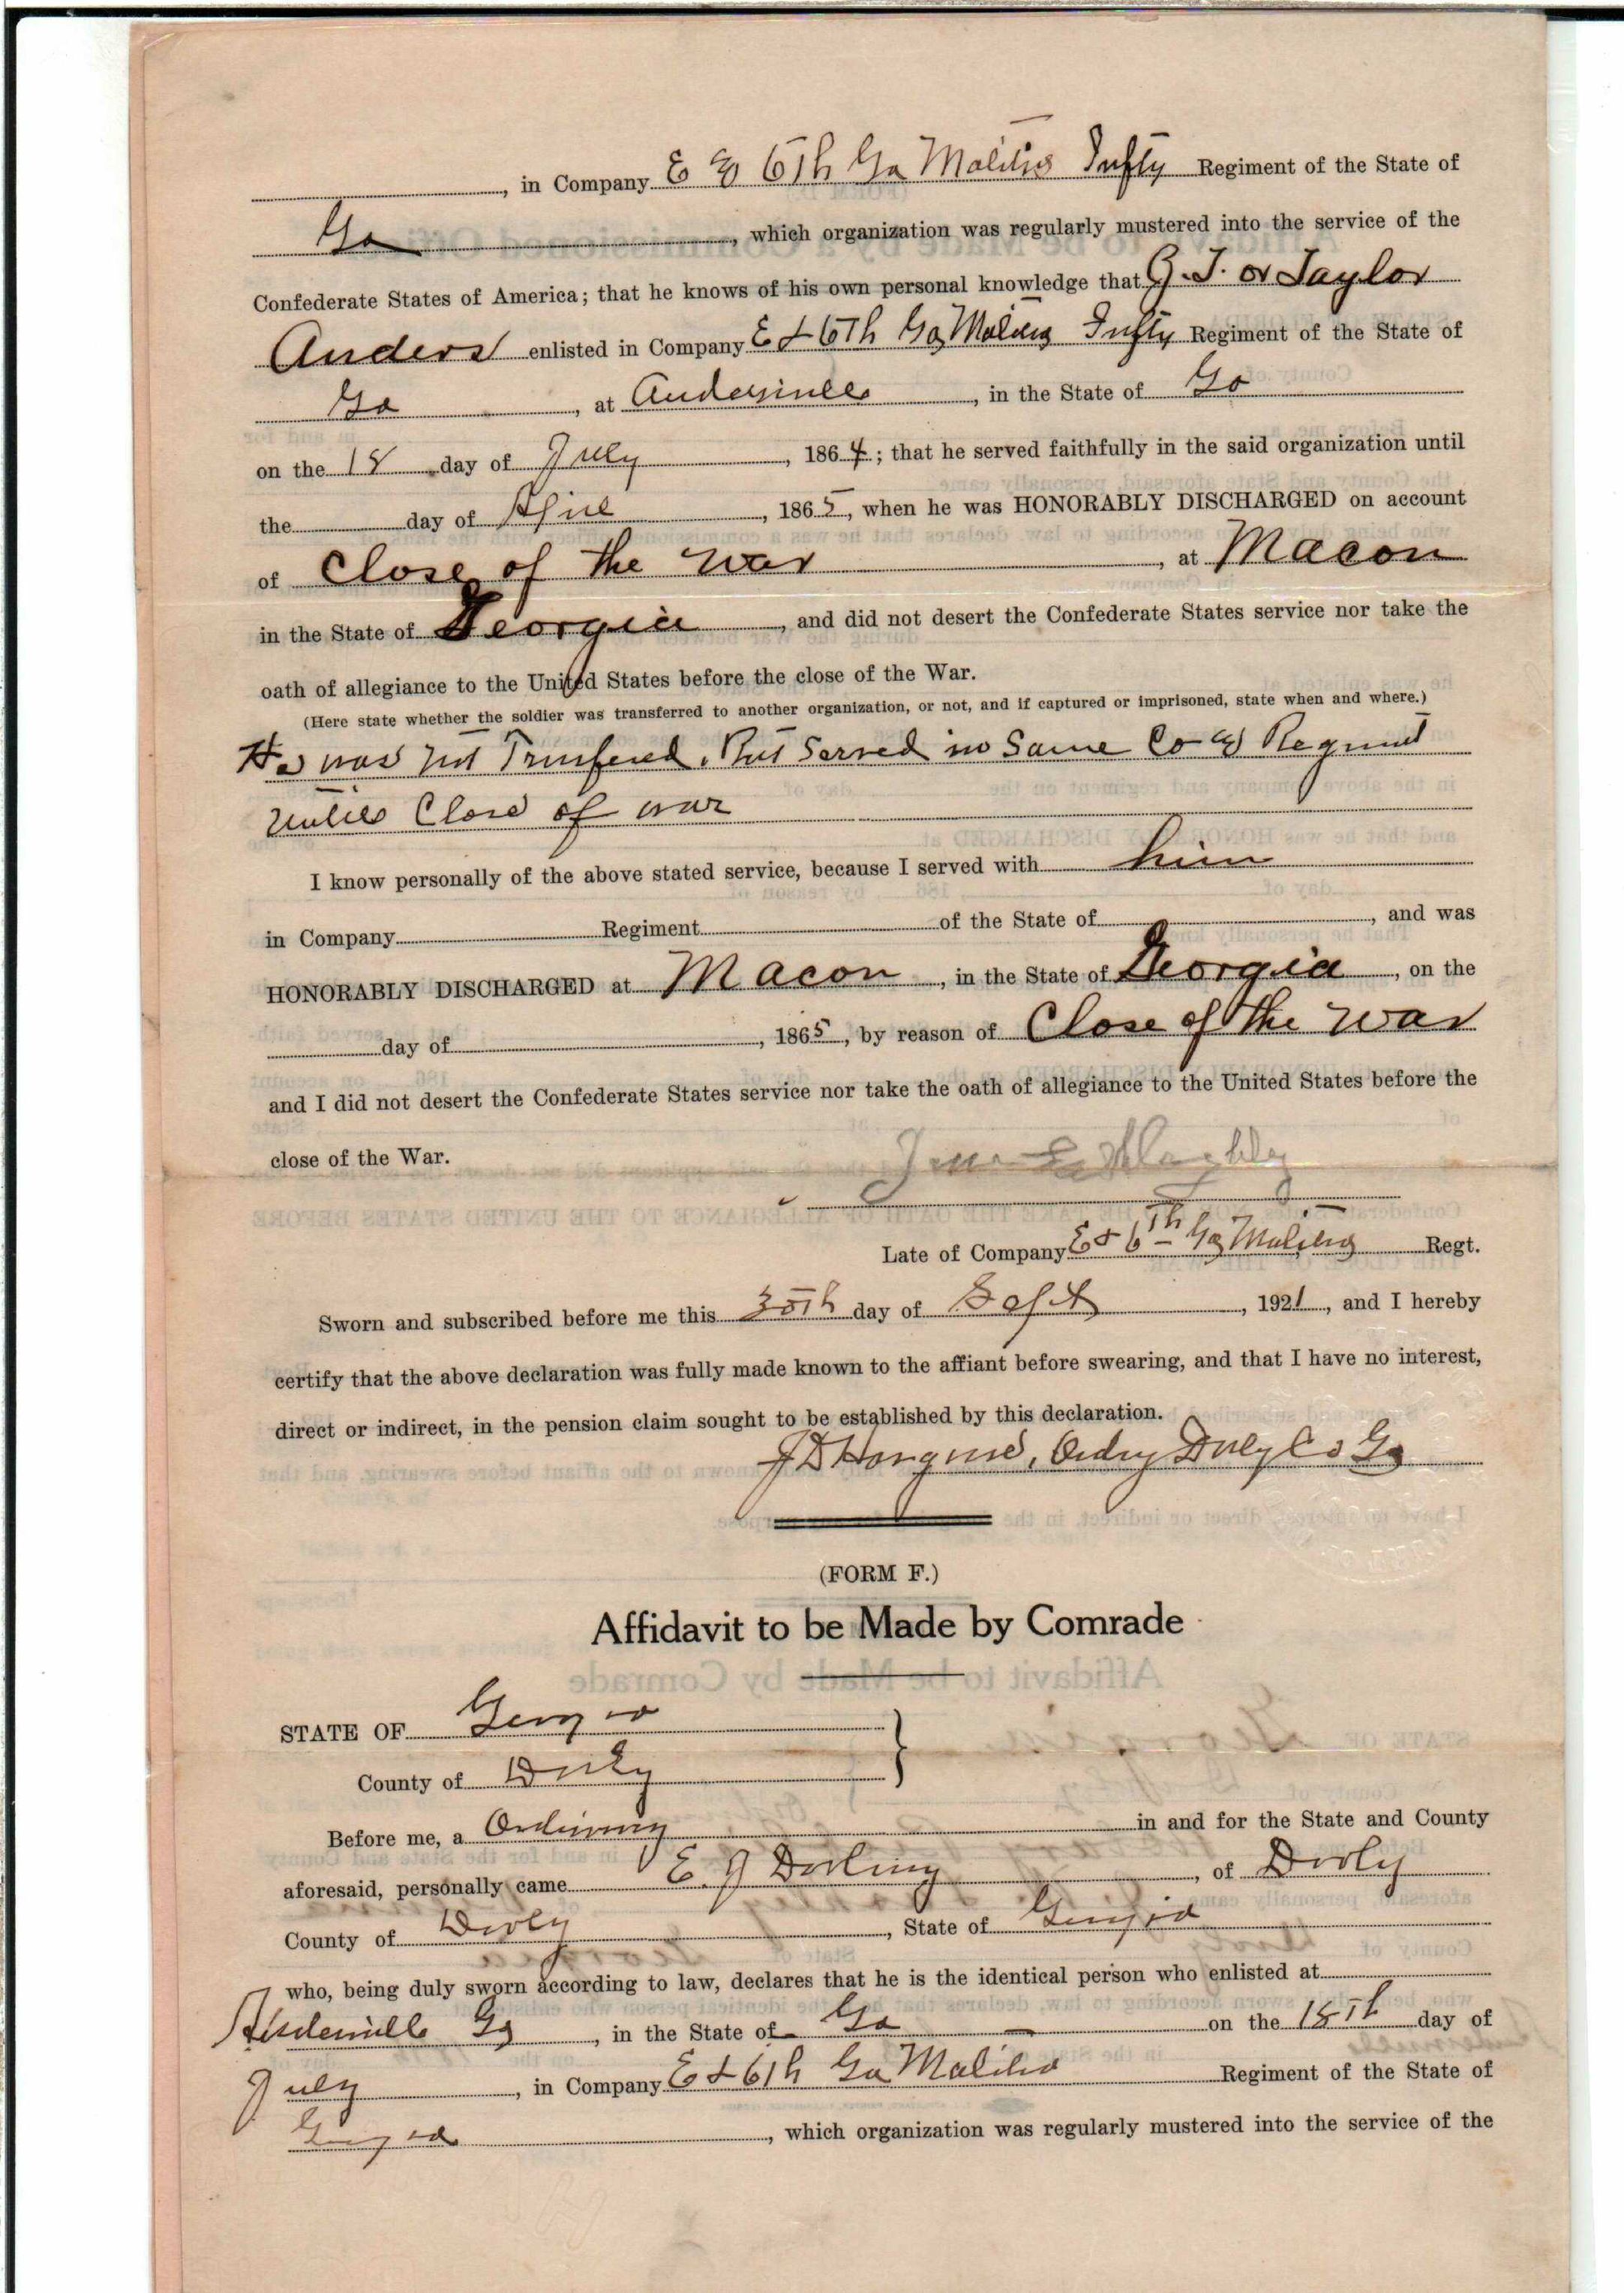 , in Company E & 6Th Ga Malitia Infty Regiment of the State of
Ga , which organization was regularly mustered into the service of the
Confederate States of America; that he knows of his own personal knowledge that G. T. or Taylor
Anders enlisted in Company E & 6Th Ga Malitia Infty Regiment of the State of
Ga , at , in the State of Ga
on the 18 day of July , 1864; that he served faithfully in the said organization until
the day of April , 1865, when he was HONORABLY DISCHARGED on account
of Close of the war , at Macon
in the State of Georgia , and did not desert the Confederate States service nor take the
oath of allegiance to the United States before the close of the War.
(Here state whether the soldier was transferred to another organization, or not, and if captured or imprisoned, state when and where.)
He was not Transfered. But Served in Same Co & Regment
Close of war
I know personally of the above stated service, because I served with him
in Company Regiment of the State of , and was
HONORABLY DISCHARGED at Macon , in the State of Georgia , on the
day of , 1865, by reason of Close of the war
and I did not desert the Confederate States service nor take the oath of allegiance to the United States before the
close of the War.
Late of Company E & 6th Ga Malitia Regt.
Sworn and subscribed before me this 30th day of Sept , 1921, and I hereby
certify that the above declaration was fully made known to the affiant before swearing, and that I have no interest,
direct or indirect, in the pension claim sought to be established by this declaration.
J D Hargrove, Ordry Dooly Co Ga
(FORM F.)
Affidavit to be Made by Comrade
STATE OF Georgia
County of Dooly
Before me, a Ordinary in and for the State and County
aforesaid, personally came E. J Dorling , of Dooly
County of Dooly , State of Georgia
who, being duly sworn according to law, declares that he is the identical person who enlisted at
Ga , in the State of Ga on the 18Th day of
July , in Company E & 6th Ga Malitia Regiment of the State of
Georgia , which organization was regularly mustered into the service of the